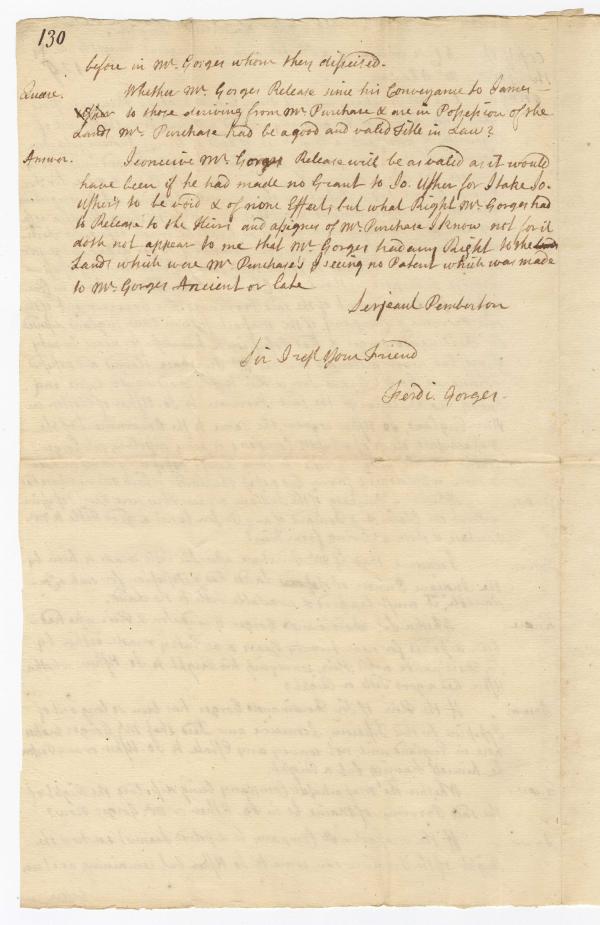 130
before in Mr. Gorges whom they disseised.
Quære. Whether Mr. Gorges Release since his Conveyance to James
Usher to those deriving from Mr. Purchase & are in Possession of the
Lands Mr. Purchase had be a good and valid Title in Law?
Answer. I conceive Mr. Gorges Release will be as valid as it would
have been if he had made no Grant to Jo. Usher for I take Jo.
Ushers to be void & of none Effect, but what Right Mr. Gorges had
to Release to the Heirs and assignes of Mr. Purchase I know not for it
doth not appear to me that Mr. Gorges had any Right to the
Lands which were Mr. Purchase's I seeing no Patent which was made
to Mr. Gorges Ancient or late
Serjeant Pemberton
Sir I rest Your Friend
Ferdi. Gorges.